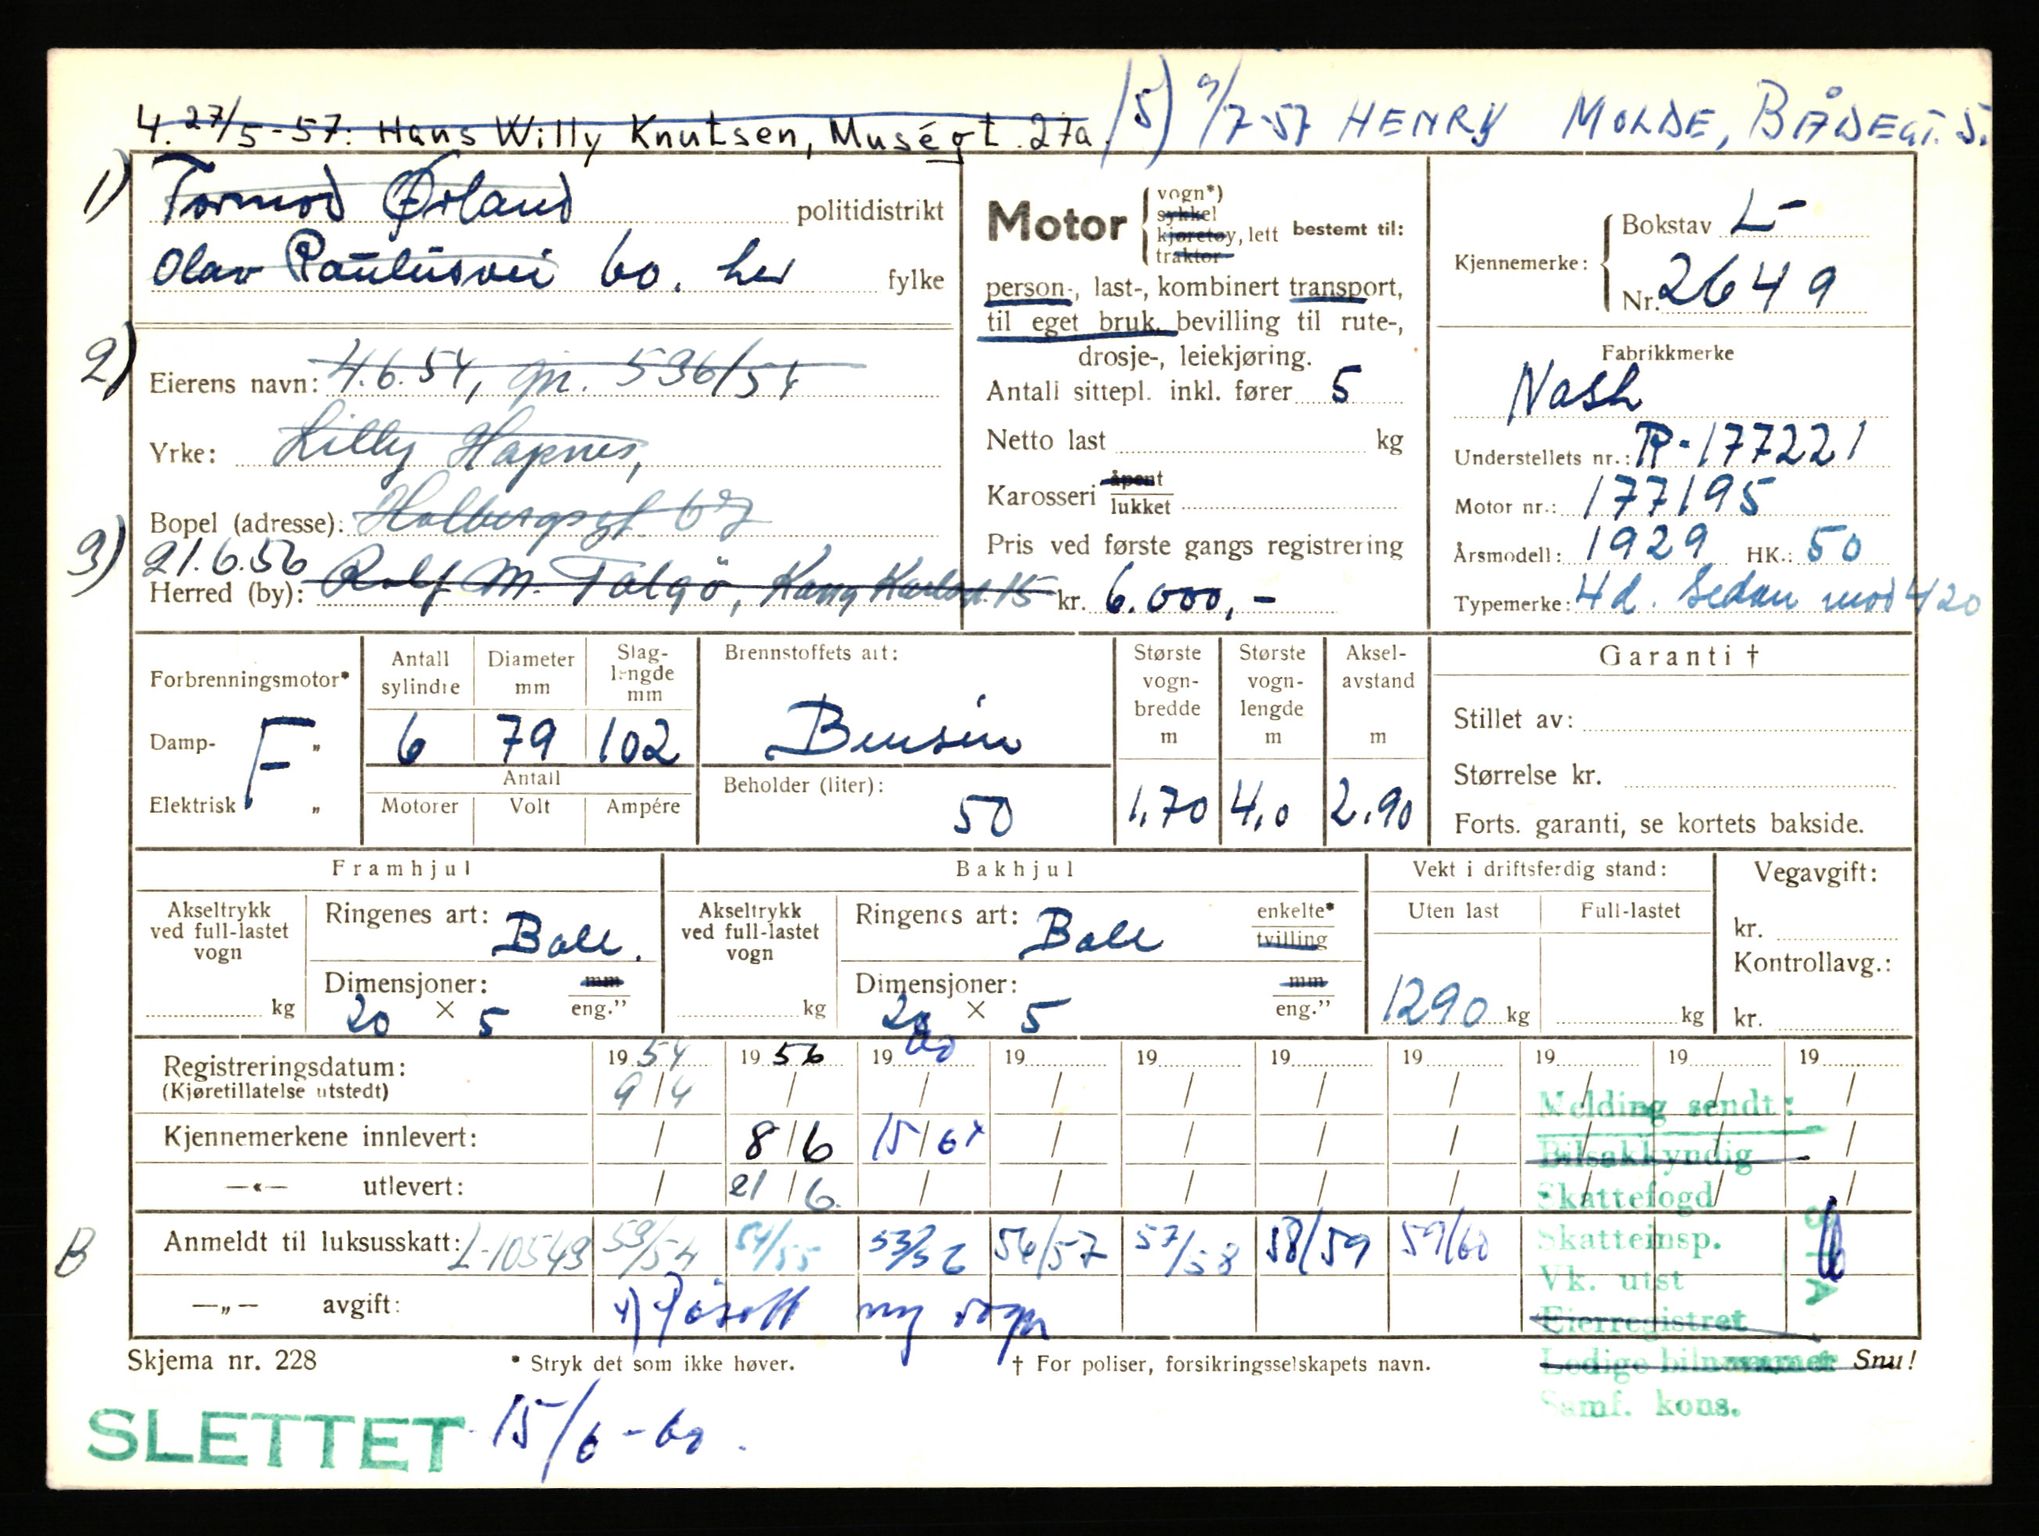 4. 27/5-57: Hans Willy Knutsen, Muségt. 27a. 5) 9/7-57 HENRY MOLDE, BÅDEGT. 5.
1) Tormod Ørland politidistrikt
Olav Paulusvei 60. her fylke
2) Eierens navn: 4.6.54, gn. 536/54
Yrke: Lilly Hapnes,
Bopel (adresse): Holbergsgt.
3) 21.6.56
Herred (by): Rolf M. Talgö, 15
Motor
vogn*)
sykkel
kjøretøy, lett
traktor
bestemt til:
person-, last-, kombinert transport,
til eget bruk, bevilling til rute-,
drosje-, leiekjøring.
Antall sittepl. inkl. fører 5
Netto last kg
Karosseri åpent
lukket
Pris ved første gangs registrering
kr. 6.000,-
Kjennemerke:
Bokstav L-
Nr. 2649
Fabrikkmerke
Nash
Understellets nr.: R-177221
Motor nr.: 177195
Årsmodell: 1929 HK.: 50
Typemerke: 4d. Sedan mod 420
Forbrenningsmotor*
Damp- "
Elektrisk "
F
Antall sylindre
6
Diameter mm
79
Slaglengde mm
102
Antall
Motorer Volt Ampére
Brennstoffets art:
Bensin
Beholder (liter):
50
Største vognbredde m
1.70
Største vognlengde m
4,0
Akselavstand m
2.90
Garanti †
Stillet av:
Størrelse kr.
Forts. garanti, se kortets bakside.
Framhjul
Akseltrykk ved full-lastet vogn
kg
Ringenes art: Ball.
Dimensjoner: mm
20 × 5 eng."
Bakhjul
Akseltrykk ved full-lastet vogn
kg
Ringenes art: Ball enkelte*
tvilling
Dimensjoner: mm
20 × 5 eng."
Vekt i driftsferdig stand:
Uten last Full-lastet
1290 kg kg
Vegavgift:
kr.
Kontrollavg.:
kr.
Registreringsdatum: 19 54 19 56 19 60 19 19 19 19 19 19 19
(Kjøretillatelse utstedt) 9/4 / / / / / / / / /
Kjennemerkene innlevert: / 8/6 15/6 x / / / / / / /
—«— utlevert: / 21/6. / / / / / / / /
B Anmeldt til luksusskatt: L-10549 53/54 54/55 55/56 56/57 57/58 58/59 59/60
—„— avgift: x) Påsatt ny vogn
Melding sendt:
Bilsakkyndig
Skattefogd
Skatteinsp.
Vk. utst
Eierregistret
Ledige bilnummer
Samf. kons.
Skjema nr. 228 * Stryk det som ikke høver. † For poliser, forsikringsselskapets navn. Snu!
SLETTET 15/6-60.